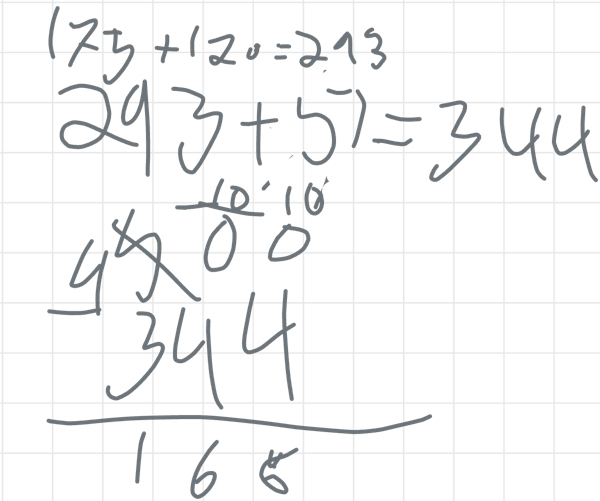 173 + 120 = 293
293 + 51 = 344
10 10
4 5 0 0
- 344
1 6 6